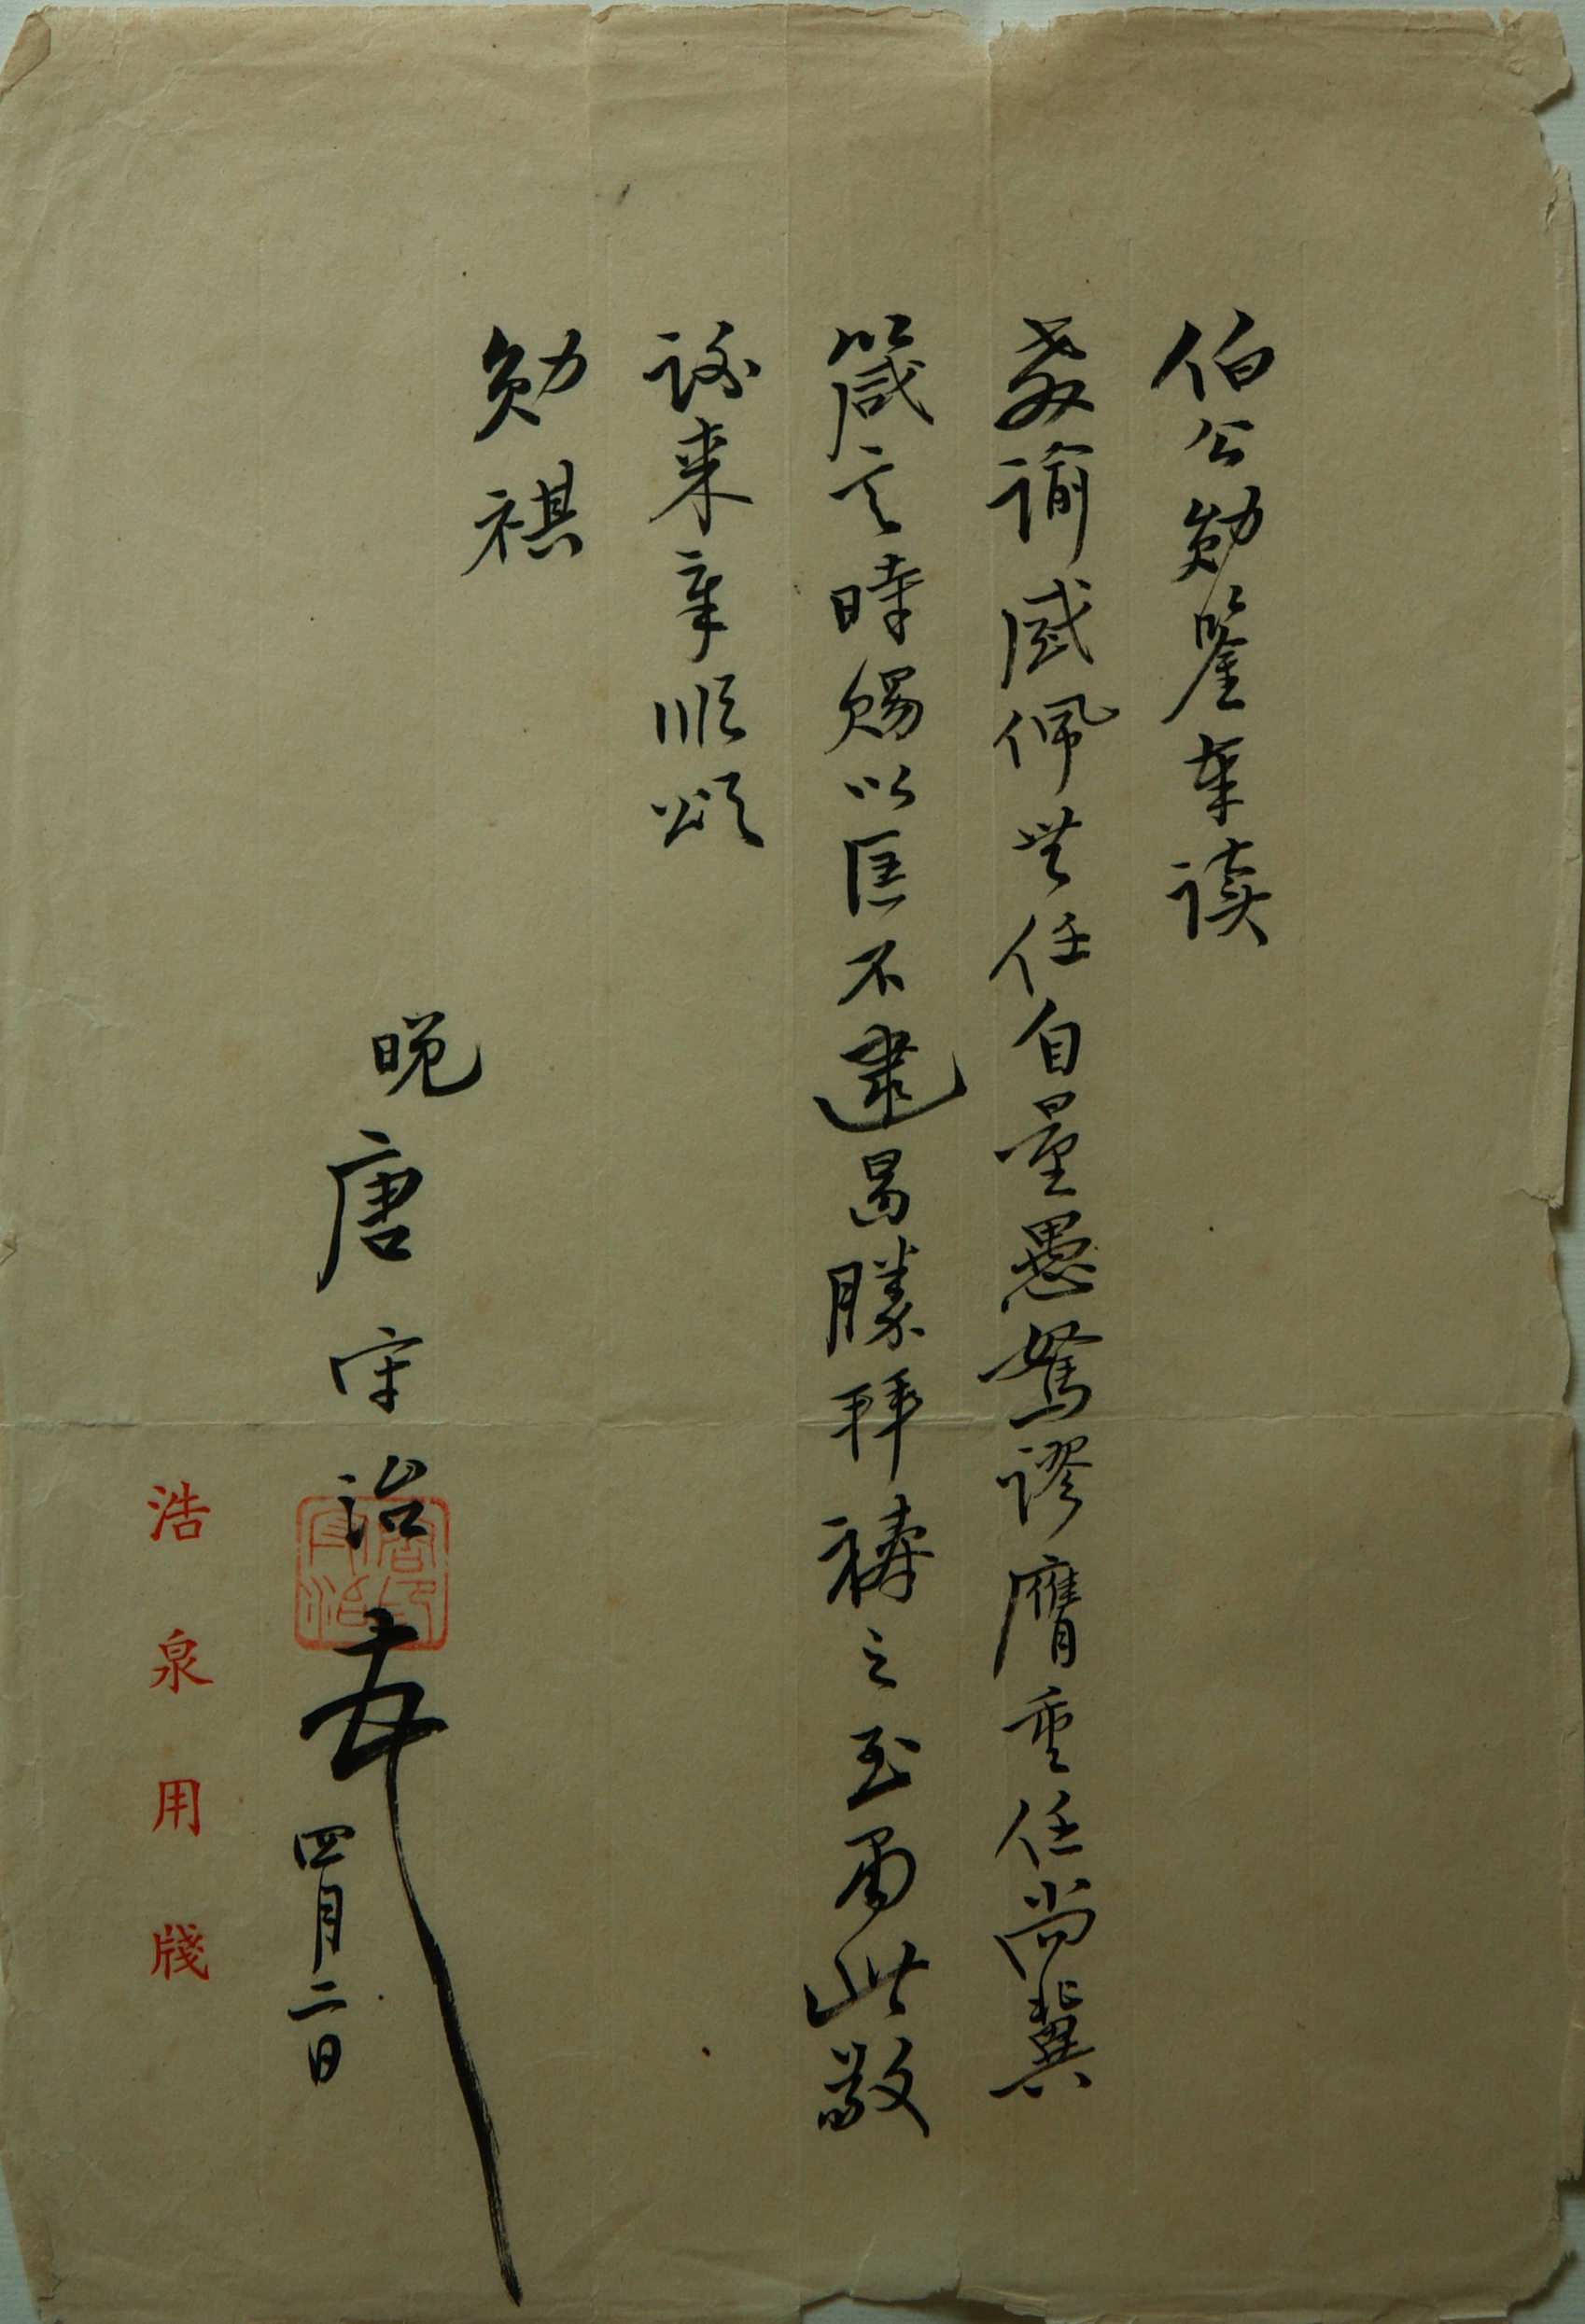 伯公勛鑒奉讀
教諭感佩無任自量愚駑謬膺重任尚冀
箴言時賜以匡不逮曷勝拜禱之至耑此敬
謝來章順頌
勛祺
晚唐守治
四月二日
浩泉用牋